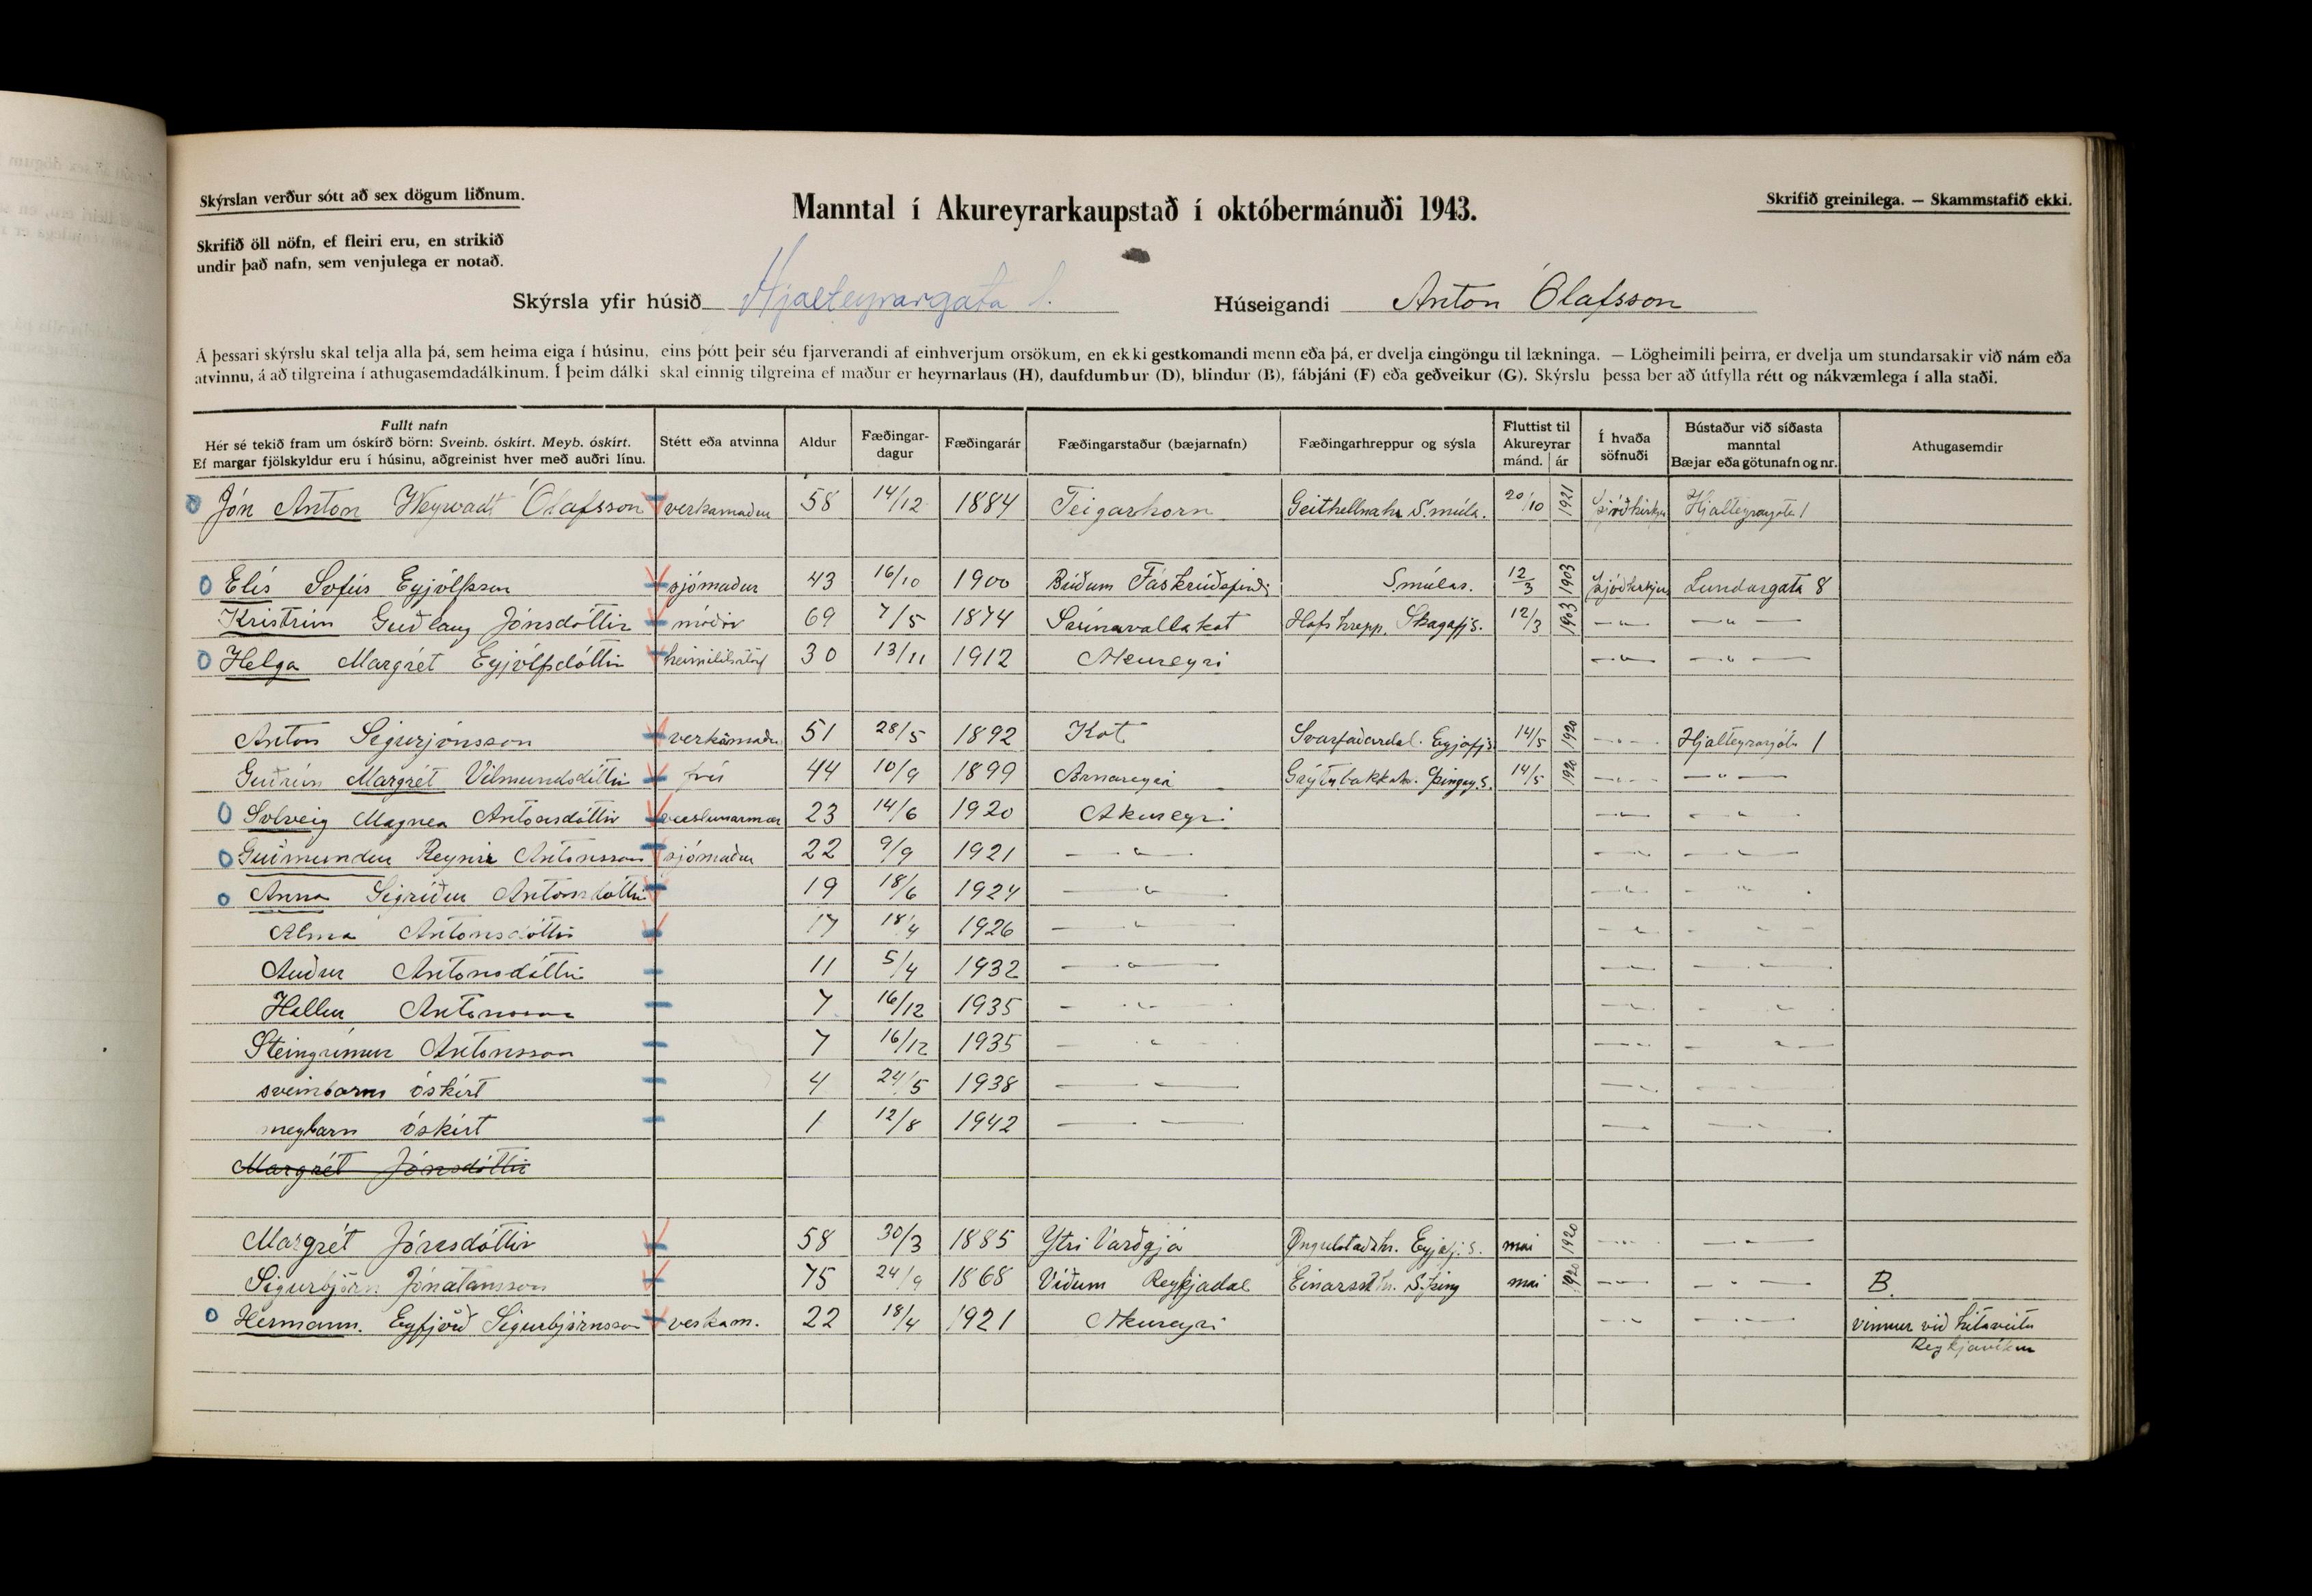 Skýrslan verður sótt að sex dögum liðnum.
Manntal í Akureyrarkaupstað í októbermánuði 1943.
Skrifið greinilega. — Skammstafið ekki.
Skrifið öll nöfn, ef fleiri eru, en strikið
undir það nafn, sem venjulega er notað.
Skýrsla yfir húsið Hjalteyrargata 1. Húseigandi Anton Ólafsson
Á þessari skýrslu skal telja alla þá, sem heima eiga í húsinu, eins þótt þeir séu fjarverandi af einhverjum orsökum, en ekki gestkomandi menn eða þá, er dvelja eingöngu til lækninga. — Lögheimili þeirra, er dvelja um stundarsakir við nám eða
atvinnu, á að tilgreina í athugasemdadálkinum. Í þeim dálki skal einnig tilgreina ef maður er heyrnarlaus (H), daufdumbur (D), blindur (B), fábjáni (F) eða geðveikur (G). Skýrslu þessa ber að útfylla rétt og nákvæmlega í alla staði.
Fullt nafn
Hér sé tekið fram um óskírð börn: Sveinb. óskírt. Meyb. óskírt.
Ef margar fjölskyldur eru í húsinu, aðgreinist hver með auðri línu.
Stétt eða atvinna
Aldur
Fæðingar-
dagur
Fæðingarár
Fæðingarstaður (bæjarnafn)
Fæðingarhreppur og sýsla
Fluttist til
Akureyrar
mánd. ár
Í hvaða
söfnuði
Bústaður við síðasta
manntal
Bæjar eða götunafn og nr.
Athugasemdir
Jón Anton Weywadt Ólafsson verkamaður 58 14/12 1884 Teigarhorn Geithellnahr S.múla. 20/10 1921 Þjóðkirkju Hjalteyrargata 1
Elís Sofus Eyjólfsson sjómaður 43 16/10 1900 Búðum Fáskrúðsfirði S.múlas. 12/3 1903 Þjóðkirkju Lundargata 8
Kristrún Guðlaug Jónsdóttir móðir 69 7/5 1874 Hofshrepp. Skagafj.s. 12/3 1903 — " — — " —
Helga Margrét Eyjólfsdóttir heimilisstörf 30 13/11 1912 Akureyri — " — — " —
Anton Sigurjónsson verkamaður 51 28/5 1892 Kot Svarfaðardal. Eyjafj.s 14/5 1920 — " — Hjalteyrargata 1
Guðrún Margrét Vilmundsdóttir frú 44 10/9 1899 Arnareyri Grýtubakkahr. Þingey.s. 14/5 1920 — " — — " —
Solveig Magnea Antonsdóttir verslunarmær 23 14/6 1920 Akureyri — " — — " —
Guðmundur Reynir Antonsson sjómaður 22 9/9 1921 — " — — " — — " —
Anna Sigríður Antonsdóttir 19 18/6 1924 — " — — " — — " —
Alma Antonsdóttir 17 18/4 1926 — " — — " — — " —
Auður Antonsdóttir 11 5/4 1932 — " — — " — — " —
Hallur Antonsson 7 16/12 1935 — " — — " — — " —
Steingrímur Antonsson 7 16/12 1935 — " — — " — — " —
sveinbarn óskírt 4 24/5 1938 — — — " — — " —
meybarn óskírt 1 12/8 1942 — — — " — — " —
Margrét Jónsdóttir
Margrét Jónsdóttir 58 30/3 1885 Ytri Varðgjá Öngulstaðahr. Eyjafj.s. maí 1920 — " — — " —
Sigurbjörn Jónatansson 75 24/9 1868 Víðum Reykjadal S.þing maí 1920 — " — — " — B.
Hermann. Eyfjörð Sigurbjörnsson verkam. 22 18/4 1921 Akureyri — " — — " — vinnur við hitaveitu
Reykjavíkur